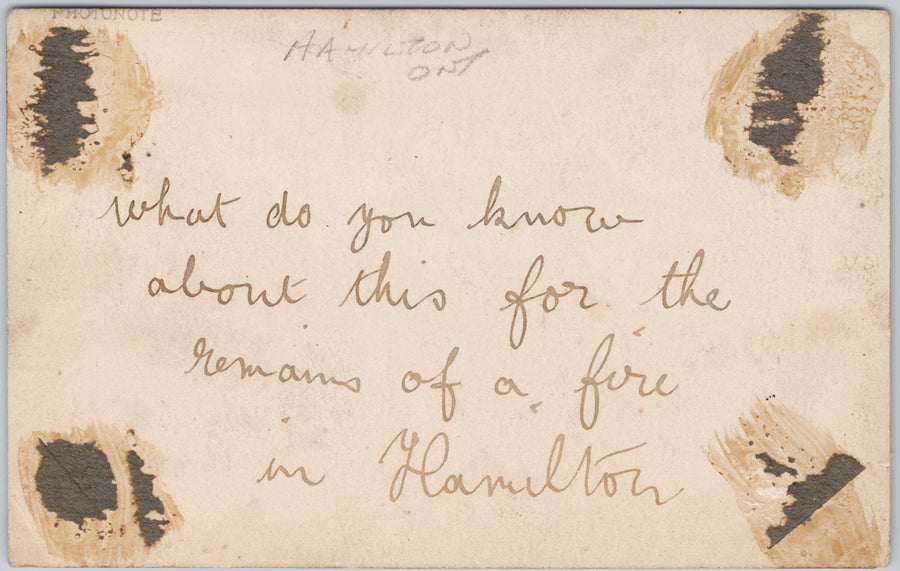 PHOTONOTE
HAMILTON
ONT
what do you know
about this for the
remains of a fire
in Hamilton